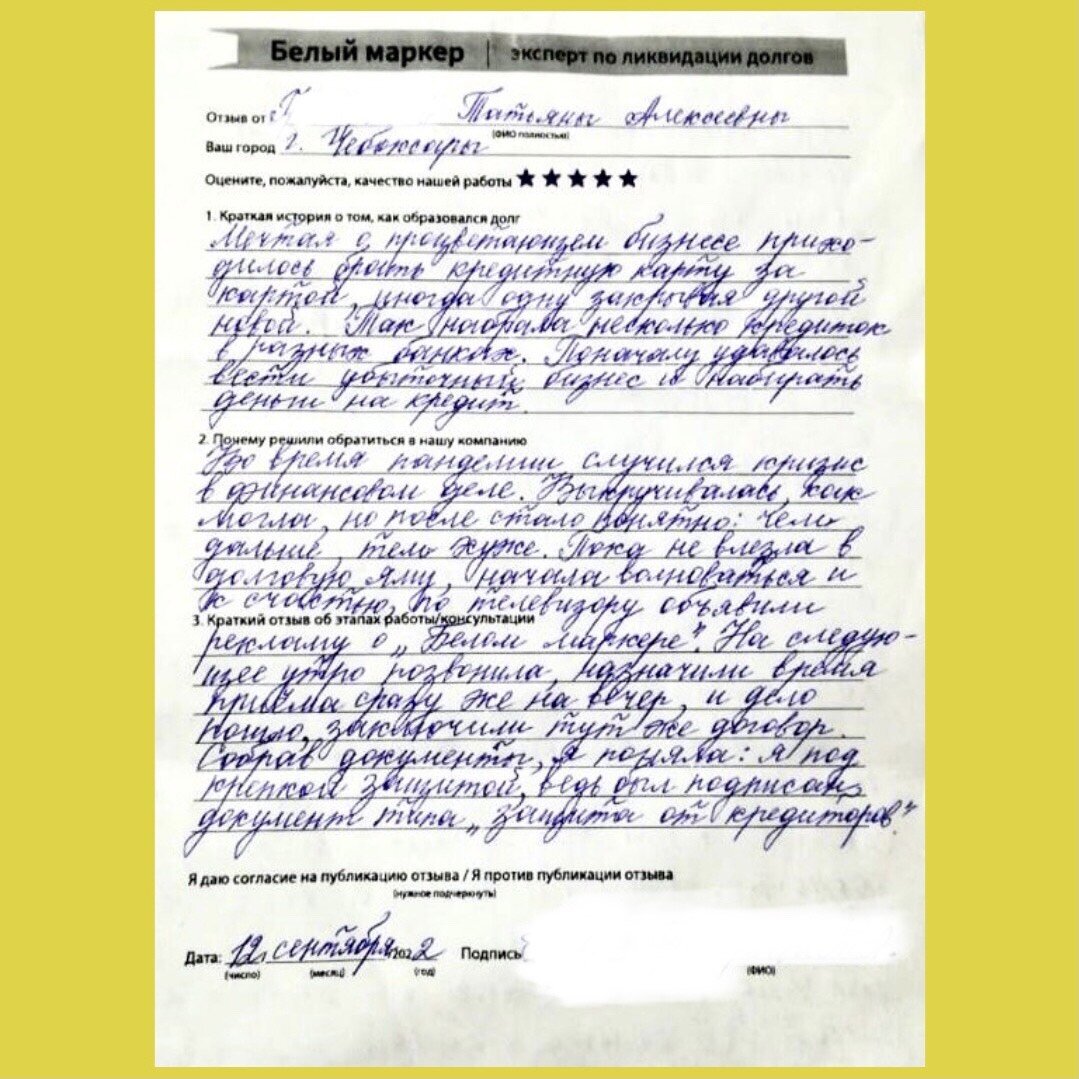 Белый маркер | эксперт по ликвидации долгов
Отзыв от Г Татьяны Алексеевны
(ФИО полностью)
Ваш город г. Чебоксары
Оцените, пожалуйста, качество нашей работы ★★★★★
1. Краткая история о том, как образовался долг
Мечтая о процветающем бизнесе прихо-
дилось брать кредитную карту за
картой, иногда одну закрывая другой
новой. Так набрала несколько кредиток
в разных банках. Поначалу удавалось
вести убыточный бизнес и набирать
деньги на кредит.
2. Почему решили обратиться в нашу компанию
Во время пандемии случился кризис
в финансовом деле. Выкручивалась, как
могла, но после стало понятно: чем
дальше, тем хуже. Пока не влезла в
долговую яму, начала волноваться и
к счастью, по телевизору объявили
3. Краткий отзыв об этапах работы/консультации
рекламу о „Белом маркере". На следую-
щее утро позвонила, назначили время
приёма сразу же на вечер, и дело
пошло, заключили тут же договор.
Собрав документы, я поняла: я под
крепкой защитой, ведь был подписан
документ типа „защита от кредиторов".
Я даю согласие на публикацию отзыва / Я против публикации отзыва
(нужное подчеркнуть)
Дата: 12 сентября 2022 Подпись
(число) (месяц) (год) (ФИО)